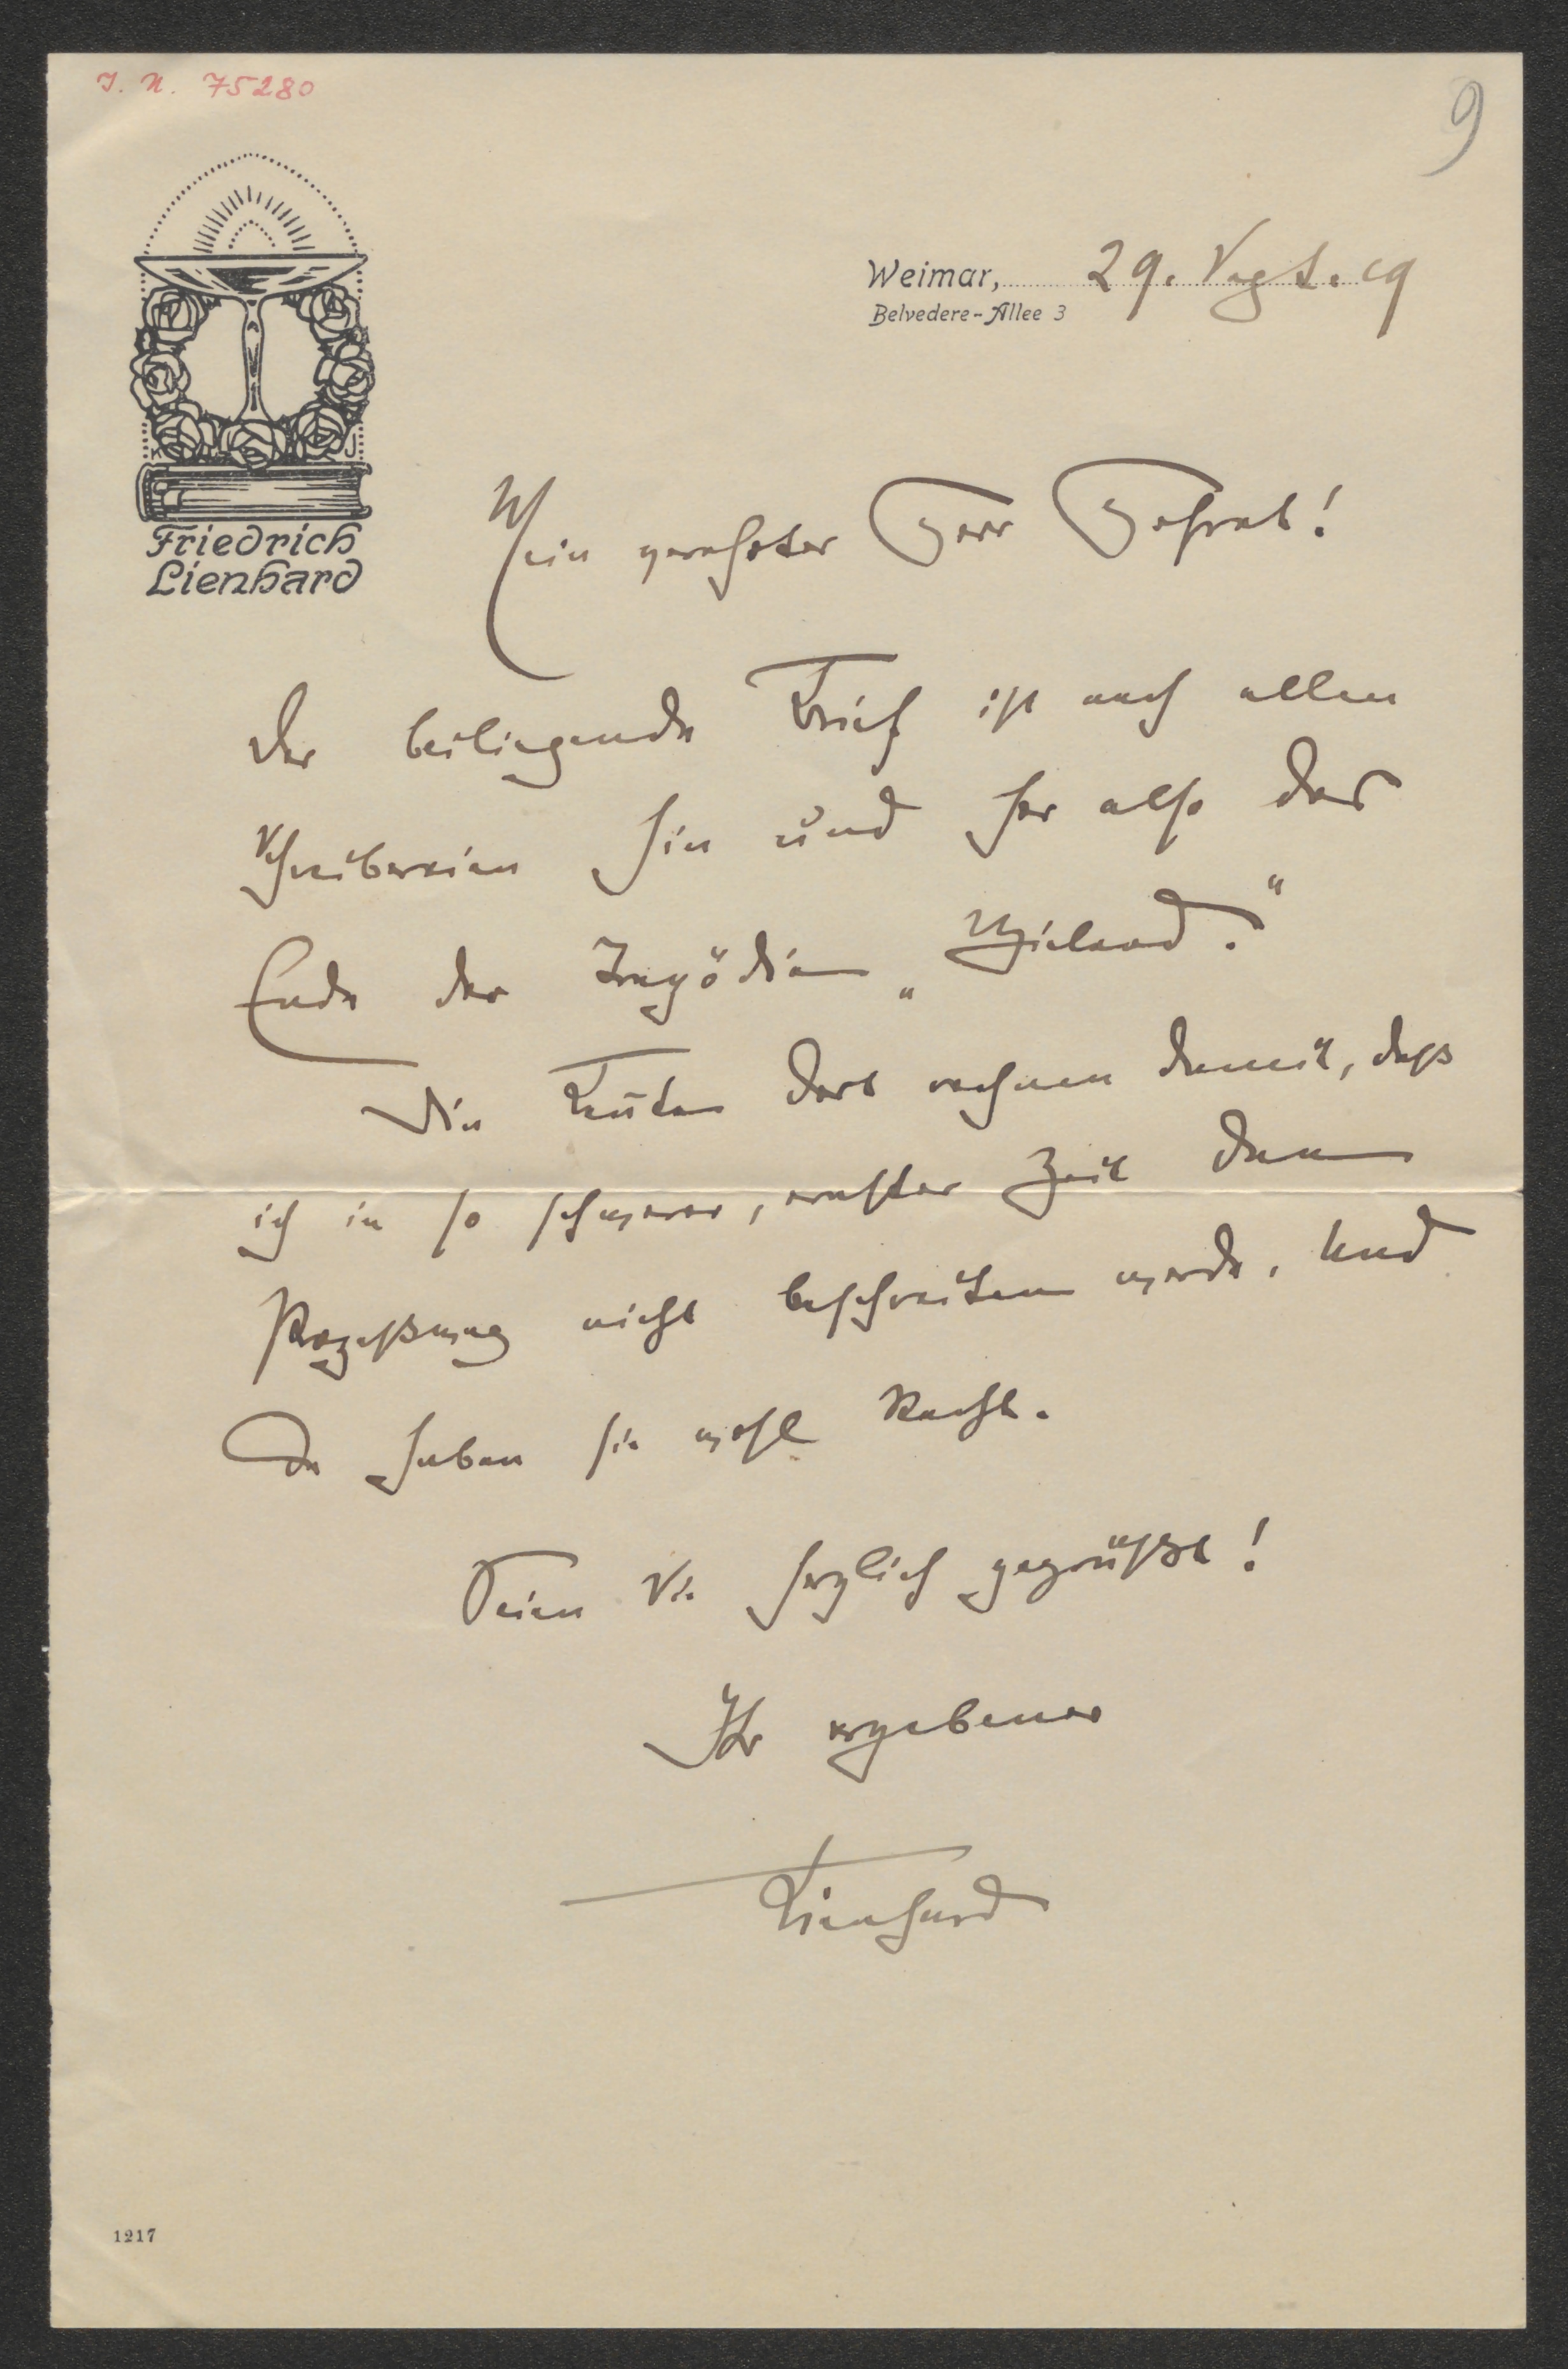 J. N. 75280
9
Weimar, 29. Sept. 19
Belvedere-Allee 3
Friedrich
Lienhard
Mein verehrter Herr Hofrat!
Der beiliegende Brief ist nach allen
Schreibereien hin und her also das
Ende der Tragödie „Wieland."
Die Leute dort rechnen damit, daß
ich in so schwerer, ernster Zeit den
Prozeßweg nicht beschreiten werde. Und
da haben sie wohl Recht.
Seien Sie herzlich gegrüßt!
Ihr ergebener
Lienhard
1217